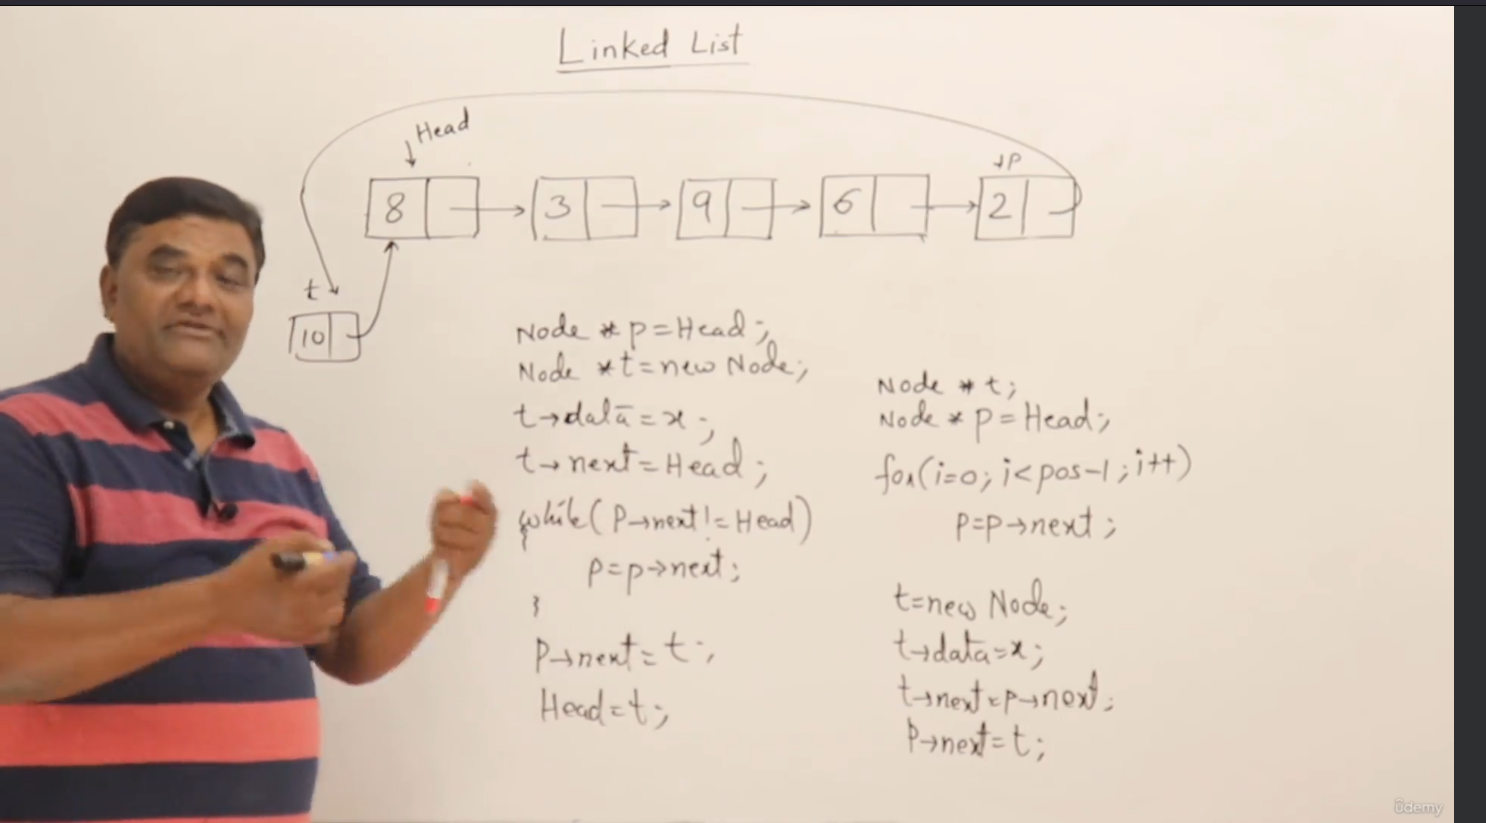 Linked List
Head
8
3
9
6
2
P
t
10
Node * p = Head;
Node * t = new Node;
t→data = x;
t→next = Head;
while( P→next != Head)
{
p = p→next;
}
P→next = t;
Head = t;
Node * t;
Node * p = Head;
for(i=0; i<pos-1; i++)
P=p→next;
t=new Node;
t→data=x;
t→next=p→next;
P→next=t;
ûdemy